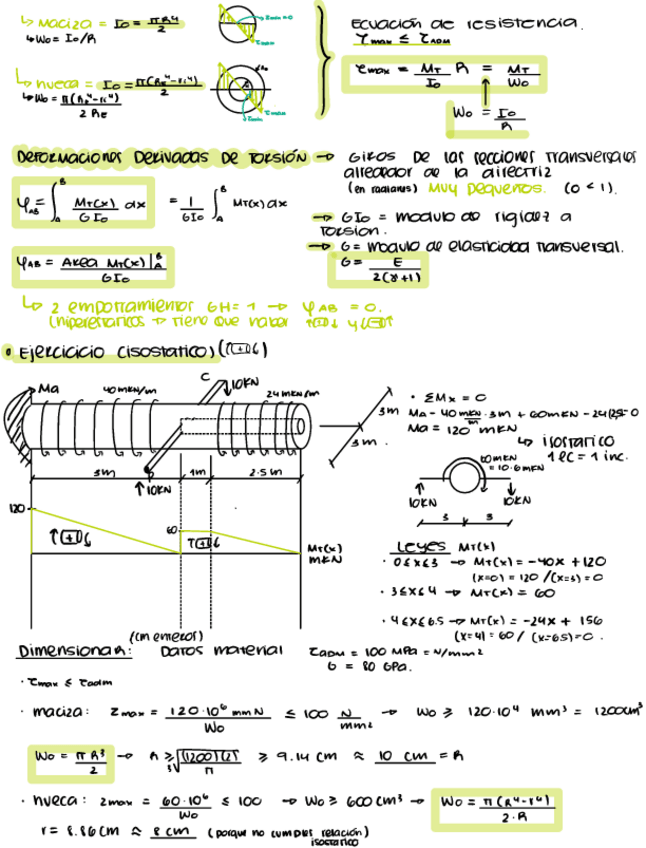 ↳ maciza = Io = πR⁴/2
↳ Wo = Io/R
τmin=0
τmax
↳ hueca = Io = π(RE⁴-ri⁴)/2
↳ Wo = π(RE⁴-ri⁴)/2 RE
τmin
τmax
Ecuación de resistencia.
τmax ≤ τADM
τmax = MT/Io R = MT/Wo
Wo = Io/R
Deformaciones derivadas de torsión → Giros de las secciones transversales
alrededor de la directriz
(en radianes) muy pequeños. (θ < 1).
φAB = ∫AB MT(x)/GIo dx = 1/GIo ∫AB MT(x) dx
→ GIo = modulo de rigidez a
torsion.
→ G = modulo de elasticidad transversal.
φAB = Area MT(x)|AB/GIo
G = E/2(γ+1)
↳ 2 empotramientos GH = 1 → φAB = 0.
(hiperestaticos → tiene que haber ↑⊕↓ y ↓⊖↑
• Ejercicicio (isostatico) (↑⊕↓)
Ma
40 mKN/m
C
10KN
24 mKN/m
3m
3m
3m
1m
2.5m
10KN
• ΣMx = 0
Ma - 40 mKN/m · 3m + 60mKN - 24(2.5)=0
Ma = 120 mKN
↳ isostatico
1 ec = 1 inc.
60mKN
= 10·6 mKN
10KN
10KN
3
3
120
↑⊕↓
60
↑⊕↓
MT(x)
mKN
Leyes MT(x)
· 0≤x≤3 → MT(x) = -40x + 120
(x=0) = 120 / (x=3) = 0
· 3≤x≤4 → MT(x) = 60
· 4≤x≤6.5 → MT(x) = -24x + 156
(x=4) = 60 / (x=6.5) = 0.
(cm enteros)
Dimensionar: Datos material τADM = 100 MPa = N/mm²
G = 80 GPa.
· τmax ≤ τadm
· maciza: τmax = 120·10⁶ mmN/Wo ≤ 100 N/mm² → Wo ≥ 120·10⁴ mm³ = 1200cm³
Wo = πR³/2 → R ≥ ³√(1200)(2)/π ≥ 9.14 cm ≈ 10 cm = R
· hueca: τmax = 60·10⁶/Wo ≤ 100 → Wo ≥ 600 cm³ → Wo = π(R⁴-r⁴)/2·R
r = 8.86 cm ≈ 8 cm (porque no cumples relación)
isostatico